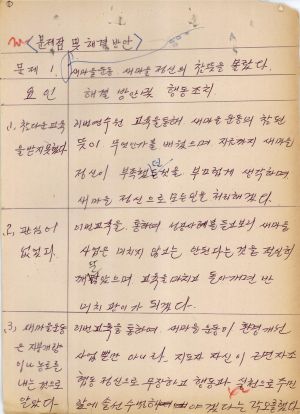 ①
<문제점 및 해결방안>
문제 1. 새마을운동, 새마을 정신의 참뜻을 몰랐다.
요인 해결 방안 및 행동조치
1, 참다운 교육 이번 연수원 교육을 통해 새마을 운동의 참된
을 받지 못했다 뜻이 무엇인가를 배웠으며 지금까지 새마을
정신이 부족했던 것을 부끄럽게 생각하며
새마을 정신으로 모든일을 처리하겠다.
2, 관심이 이번 교육을 통하여 성공사례를 듣고보니 새마을
없었다. 사업은 미치지 않고는 안된다는 것을 절실히
깨달았으며 교육을 마치고 돌아가면 반
미치광이가 되겠다.
3, 새마을운동 이번 교육을 통하여 새마을 운동이 환경개선
은 지붕개량 사업뿐만 아니라 지도자 자신이 근면자조
이나 농로를 협동 정신으로 무장하고 행동과 실천으로 주민
내는 것으로 앞에 솔선수범해야 겠다는 각오를 했다
알았다